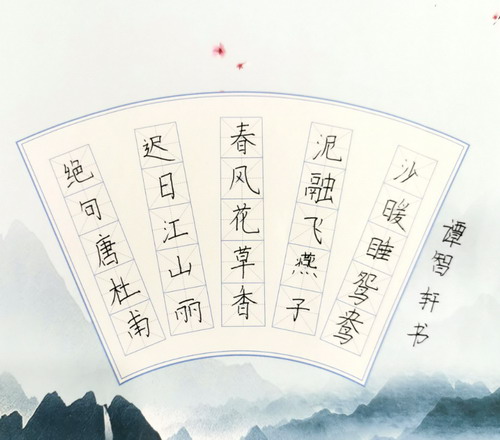 绝句唐杜甫
迟日江山丽
春风花草香
泥融飞燕子
沙暖睡鸳鸯
谭智轩书